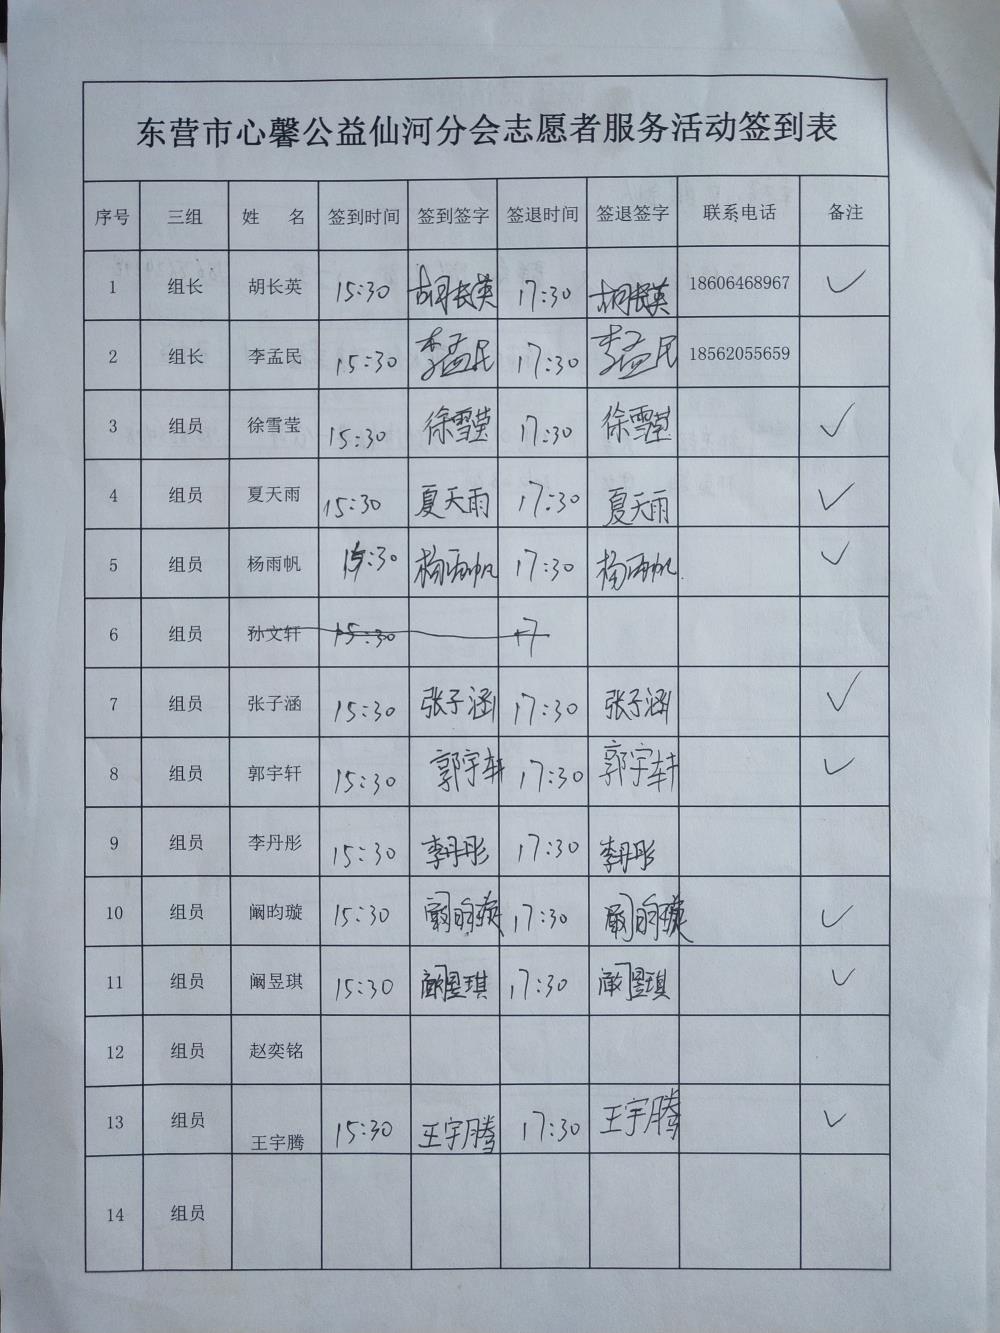 东营市心馨公益仙河分会志愿者服务活动签到表
序号 三组 姓 名 签到时间 签到签字 签退时间 签退签字 联系电话 备注
1 组长 胡长英 15:30 胡长英 17:30 胡长英 18606468967 ✓
2 组长 李孟民 15:30 李孟民 17:30 李孟民 18562055659
3 组员 徐雪莹 15:30 徐雪莹 17:30 徐雪莹 ✓
4 组员 夏天雨 15:30 夏天雨 17:30 夏天雨 ✓
5 组员 杨雨帆 15:30 杨雨帆 17:30 杨雨帆 ✓
6 组员 孙文轩 15:30 17
7 组员 张子涵 15:30 张子涵 17:30 张子涵 ✓
8 组员 郭宇轩 15:30 郭宇轩 17:30 郭宇轩 ✓
9 组员 李丹彤 15:30 李丹彤 17:30 李丹彤
10 组员 阚昀璇 15:30 阚昀璇 17:30 阚昀璇 ✓
11 组员 阚昱琪 15:30 阚昱琪 17:30 阚昱琪 ✓
12 组员 赵奕铭
13 组员 王宇腾 15:30 王宇腾 17:30 王宇腾 ✓
14 组员